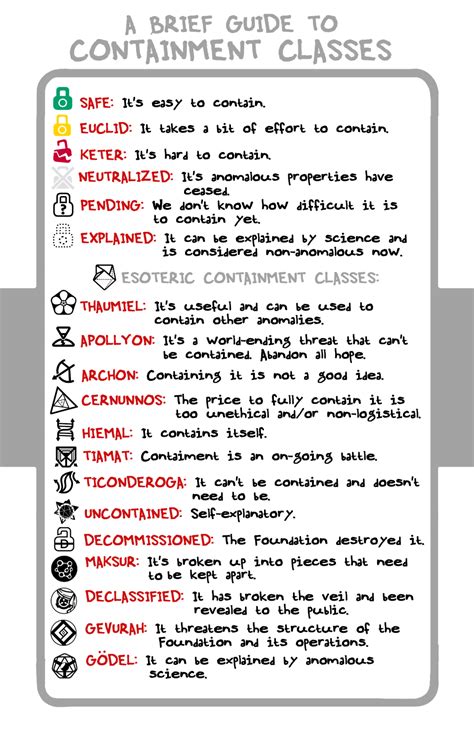 A BRIEF GUIDE TO
CONTAINMENT CLASSES
SAFE: It's easy to contain.
EUCLID: It takes a bit of effort to contain.
KETER: It's hard to contain.
NEUTRALIZED: It's anomalous properties have
ceased.
PENDING: We don't know how difficult it is
to contain yet.
EXPLAINED: It can be explained by science and
is considered non-anomalous now.
ESOTERIC CONTAINMENT CLASSES:
THAUMIEL: It's useful and can be used to
contain other anomalies.
APOLLYON: It's a world-ending threat that can't
be contained. Abandon all hope.
ARCHON: Containing it is not a good idea.
CERNUNNOS: The price to fully contain it is
too unethical and/or non-logistical.
HIEMAL: It contains itself.
TIAMAT: Contaiment is an on-going battle.
TICONDEROGA: It can't be contained and doesn't
need to be.
UNCONTAINED: Self-explanatory.
DECOMMISSIONED: The Foundation destroyed it.
MAKSUR: It's broken up into pieces that need
to be kept apart.
DECLASSIFIED: It has broken the veil and been
revealed to the public.
GEVURAH: It threatens the structure of the
Foundation and its operations.
GÖDEL: It can be explained by anomalous
science.